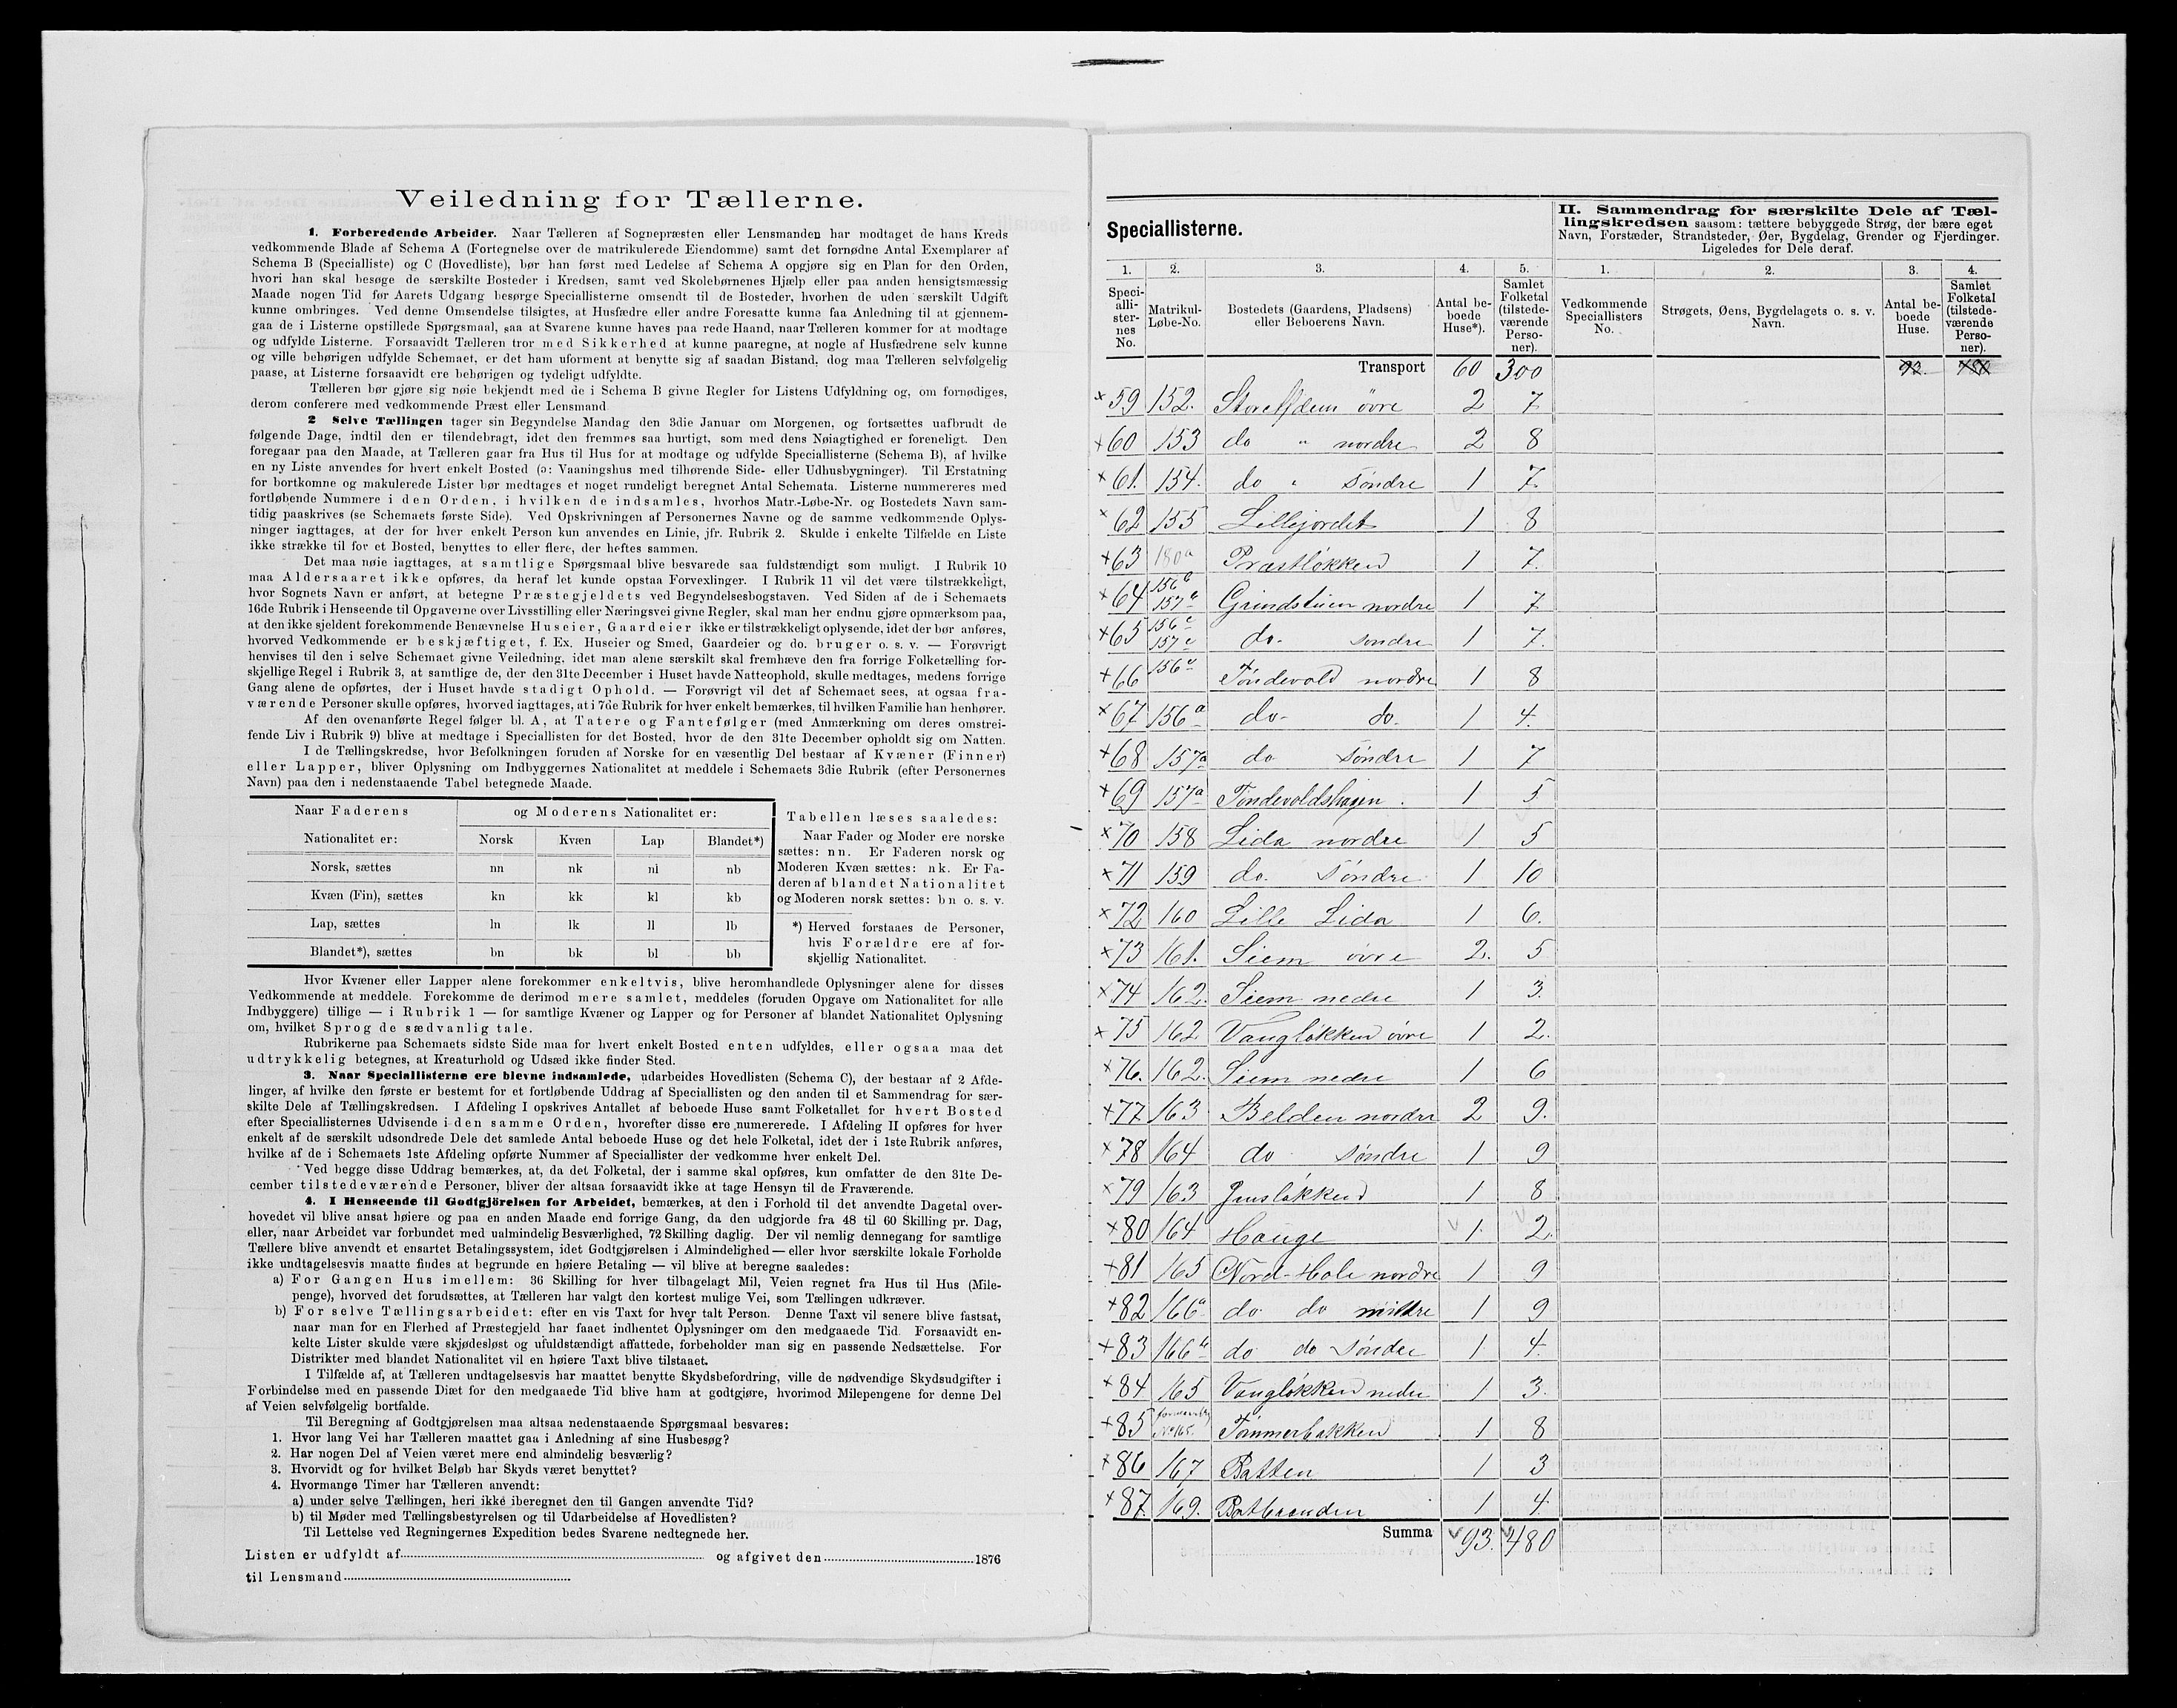 Veiledning for Tællerne.
1. Forberedende Arbeider. Naar Tælleren af Sognepræsten eller Lensmanden har modtaget de hans Kreds
vedkommende Blade af Schema A (Fortegnelse over de matrikulerede Eiendomme) samt det fornødne Antal Exemplarer af
Schema B (Specialliste) og C (Hovedliste), bør han først med Ledelse af Schema A opgjøre sig en Plan for den Orden,
hvori han skal besøge de særskilte Bosteder i Kredsen, samt ved Skolebørnenes Hjælp eller paa anden hensigtsmæssig
Maade nogen Tid før Aarets Udgang besørge Speciallisterne omsendt til de Bosteder, hvorhen de uden særskilt Udgift
kunne ombringes. Ved denne Omsendelse tilsigtes, at Husfædre eller andre Foresatte kunne faa Anledning til at gjennem-
gaa de i Listerne opstillede Spørgsmaal, saa at Svarene kunne haves paa rede Haand, naar Tælleren kommer for at modtage
og udfylde Listerne. Forsaavidt Tælleren tror med Sikkerhed at kunne paaregne, at nogle af Husfædrene selv kunne
og ville behørigen udfylde Schemaet, er det ham uforment at benytte sig af saadan Bistand, dog maa Tælleren selvfølgelig
paase, at Listerne forsaavidt ere behørigen og tydeligt udfyldte.
Tælleren bør gjøre sig nøie bekjendt med de i Schema B givne Regler for Listens Udfyldning og, om fornødiges,
derom conferere med vedkommende Præst eller Lensmand
2 Selve Tællingen tager sin Begyndelse Mandag den 3die Januar om Morgenen, og fortsættes uafbrudt de
følgende Dage, indtil den er tilendebragt, idet den fremmes saa hurtigt, som med dens Nøiagtighed er foreneligt. Den
foregaar paa den Maade, at Tælleren gaar fra Hus til Hus for at modtage og udfylde Speciallisterne (Schema B), af hvilke
en ny Liste anvendes for hvert enkelt Bosted (ɔ: Vaaningshus med tilhørende Side- eller Udhusbygninger). Til Erstatning
for bortkomne og makulerede Lister bør medtages et noget rundeligt beregnet Antal Schemata. Listerne nummereres med
fortløbende Nummere i den Orden, i hvilken de indsamles, hvorhos Matr.-Løbe-Nr. og Bostedets Navn sam-
tidig paaskrives (se Schemaets første Side). Ved Opskrivningen af Personernes Navne og de samme vedkommende Oplys-
ninger iagttages, at der for hver enkelt Person kun anvendes en Linie, jfr. Rubrik 2. Skulde i enkelte Tilfælde en Liste
ikke strække til for et Bosted, benyttes to eller flere, der heftes sammen.
Det maa nøie iagttages, at samtlige Spørgsmaal blive besvarede saa fuldstændigt som muligt. I Rubrik 10
maa Aldersaaret ikke opføres, da heraf let kunde opstaa Forvexlinger. I Rubrik 11 vil det være tilstrækkeligt,
hvor Sognets Navn er anført, at betegne Præstegjeldets ved Begyndelsesbogstaven. Ved Siden af de i Schemaets
16de Rubrik i Henseende til Opgaverne over Livsstilling eller Næringsvei givne Regler, skal man her endnu gjøre opmærksom paa,
at den ikke sjeldent forekommende Benævnelse Huseier, Gaardeier ikke er tilstrækkeligt oplysende, idet der bør anføres,
hvorved Vedkommende er beskjæftiget, f. Ex. Huseier og Smed, Gaardeier og do. bruger o. s. v. — Forøvrigt
henvises til den i selve Schemaet givne Veiledning, idet man alene særskilt skal fremhæve den fra forrige Folketælling for-
skjellige Regel i Rubrik 3, at samtlige de, der den 31te December i Huset havde Natteophold, skulle medtages, medens forrige
Gang alene de opførtes, der i Huset havde stadigt Ophold. — Forøvrigt vil det af Schemaet sees, at ogsaa fra-
værende Personer skulle opføres, hvorved iagttages, at i 7de Rubrik for hver enkelt bemærkes, til hvilken Familie han henhører.
Af den ovenanførte Regel følger bl. A, at Tatere og Fantefølger (med Anmærkning om deres omstrei-
fende Liv i Rubrik 9) blive at medtage i Speciallisten for det Bosted, hvor de den 31te December opholdt sig om Natten.
I de Tællingskredse, hvor Befolkningen foruden af Norske for en væsentlig Del bestaar af Kvæner (Finner)
eller Lapper, bliver Oplysning om Indbyggernes Nationalitet at meddele i Schemaets 3die Rubrik (efter Personernes
Navn) paa den i nedenstaaende Tabel betegnede Maade.
Naar Faderens og Moderens Nationalitet er:
Nationalitet er: Norsk Kvæn Lap Blandet*)
Norsk, sættes nn nk nl nb
Kvæn (Fin), sættes kn kk kl kb
Lap, sættes ln lk ll lb
Blandet*), sættes bn bk bl bb
Tabellen læses saaledes:
Naar Fader og Moder ere norske
sættes: nn. Er Faderen norsk og
Moderen Kvæn sættes: nk. Er Fa-
deren af blandet Nationalitet
og Moderen norsk sættes: bn o. s. v.
*) Herved forstaaes de Personer,
hvis Forældre ere af for-
skjellig Nationalitet.
Hvor Kvæner eller Lapper alene forekommer enkeltvis, blive heromhandlede Oplysninger alene for disses
Vedkommende at meddele. Forekomme de derimod mere samlet, meddeles (foruden Opgave om Nationalitet for alle
Indbyggere) tillige — i Rubrik 1 — for samtlige Kvæner og Lapper og for Personer af blandet Nationalitet Oplysning
om, hvilket Sprog de sædvanlig tale.
Rubrikerne paa Schemaets sidste Side maa for hvert enkelt Bosted enten udfyldes, eller ogsaa maa det
udtrykkelig betegnes, at Kreaturhold og Udsæd ikke finder Sted.
3. Naar Speciallisterne ere blevne indsamlede, udarbeides Hovedlisten (Schema C), der bestaar af 2 Afde-
linger, af hvilke den første er bestemt for et fortløbende Uddrag af Speciallisten og den anden til et Sammendrag for sær-
skilte Dele af Tællingskredsen. I Afdeling I opskrives Antallet af beboede Huse samt Folketallet for hvert Bosted
efter Speciallisternes Udvisende i den samme Orden, hvorefter disse ere numererede. I Afdeling II opføres for hver
enkelt af de særskilt udsondrede Dele det samlede Antal beboede Huse og det hele Folketal, idet der i 1ste Rubrik anføres,
hvilke af de i Schemaets 1ste Afdeling opførte Nummer af Speciallister der vedkomme hver enkelt Del.
Ved begge disse Uddrag bemærkes, at, da det Folketal, der i samme skal opføres, kun omfatter de den 31te De-
cember tilstedeværende Personer, bliver der altsaa forsaavidt ikke at tage Hensyn til de Fraværende.
4. I Henseende til Godtgjörelsen for Arbeidet, bemærkes, at den i Forhold til det anvendte Dagetal over-
hovedet vil blive ansat høiere og paa en anden Maade end forrige Gang, da den udgjorde fra 48 til 60 Skilling pr. Dag,
eller, naar Arbeidet var forbundet med ualmindelig Besværlighed, 72 Skilling daglig. Der vil nemlig dennegang for samtlige
Tællere blive anvendt et ensartet Betalingssystem, idet Godtgjørelsen i Almindelighed — eller hvor særskilte lokale Forholde
ikke undtagelsesvis maatte findes at begrunde en høiere Betaling — vil blive at beregne saaledes:
a) For Gangen Hus imellem: 36 Skilling for hver tilbagelagt Mil, Veien regnet fra Hus til Hus (Mile-
penge), hvorved det forudsættes, at Tælleren har valgt den kortest mulige Vei, som Tællingen udkræver.
b) For selve Tællingsarbeidet: efter en vis Taxt for hver talt Person. Denne Taxt vil senere blive fastsat,
naar man for en Flerhed af Præstegjeld har faaet indhentet Oplysninger om den medgaaede Tid. Forsaavidt en-
kelte Lister skulde være skjødesløst og ufuldstændigt affattede, forbeholder man sig en passende Nedsættelse. For
Distrikter med blandet Nationalitet vil en høiere Taxt blive tilstaaet.
I Tilfælde af, at Tælleren undtagelsesvis har maattet benytte Skydsbefordring, ville de nødvendige Skydsudgifter i
Forbindelse med en passende Diæt for den medgaaede Tid blive ham at godtgjøre, hvorimod Milepengene for denne Del
af Veien selvfølgelig bortfalde.
Til Beregning af Godtgjørelsen maa altsaa nedenstaaende Spørgsmaal besvares:
1. Hvor lang Vei har Tælleren maattet gaa i Anledning af sine Husbesøg?
2. Har nogen Del af Veien været mere end almindelig besværlig?
3. Hvorvidt og for hvilket Beløb har Skyds været benyttet?
4. Hvormange Timer har Tælleren anvendt:
a) under selve Tællingen, heri ikke iberegnet den til Gangen anvendte Tid?
b) til Møder med Tællingsbestyrelsen og til Udarbeidelse af Hovedlisten?
Til Lettelse ved Regningernes Expedition bedes Svarene nedtegnede her.
Listen er udfyldt af og afgivet den 1876
til Lensmand
Speciallisterne.
II. Sammendrag for særskilte Dele af Tæl-
lingskredsen saasom: tættere bebyggede Strøg, der bære eget
Navn, Forstæder, Strandsteder, Øer, Bygdelag, Grender og Fjerdinger.
Ligeledes for Dele deraf.
1. 2. 3. 4. 5. 1. 2. 3. 4.
Speci-
alli-
ster-
nes
No.
Matrikul-
Løbe-No.
Bostedets (Gaardens, Pladsens)
eller Beboerens Navn.
Antal be-
boede
Huse*).
Samlet
Folketal
(tilstede-
værende
Perso-
ner).
Vedkommende
Speciallisters
No.
Strøgets, Øens, Bygdelagets o. s. v.
Navn.
Antal be-
boede
Huse.
Samlet
Folketal
(tilstede-
værende
Perso-
ner).
Transport 60 300
×59 152. Storelfdem övre 2 7
×60 153 do " nordre 2 8
×61. 154. do " söndre 1 7.
×62 155 Lillejordet 1 8
×63 180a Præstløkken 1 7.
×64 156b 157b Grindstuen nordre 1 7
×65 156c 157c do. söndre 1 7.
×66 156 Töndevold nordre 1 8
×67 156a do. do. 1 4.
×68 157a do söndre 1 7
×69 157a Töndevoldshagen 1 5
×70 158 Lida nordre 1 5
×71 159 do. söndre 1 10
×72 160 Lille Lida 1 6.
×73 161. Siem övre 2. 5
×74 162. Siem nedre 1 3.
×75 162 Vangløkken övre 1 2.
×76. 162. Siem nedre 1 6
×77 163 Belden nordre 2 9.
×78 164 do söndre 1 9
×79 163 Jensløkken 1 8
×80 164 Hauge 1. 2.
×81 165 Nord-Hole nordre 1 9
×82 166a do do midtre 1 9
×83 166b do do söndre 1 4.
×84 165 Vangløkken nedre 1 3.
×85 No 165. Tömmerbakken 1 8
×86 167 Batten 1 3
×87. 169. Batbranden 1 4.
Summa 93. 480